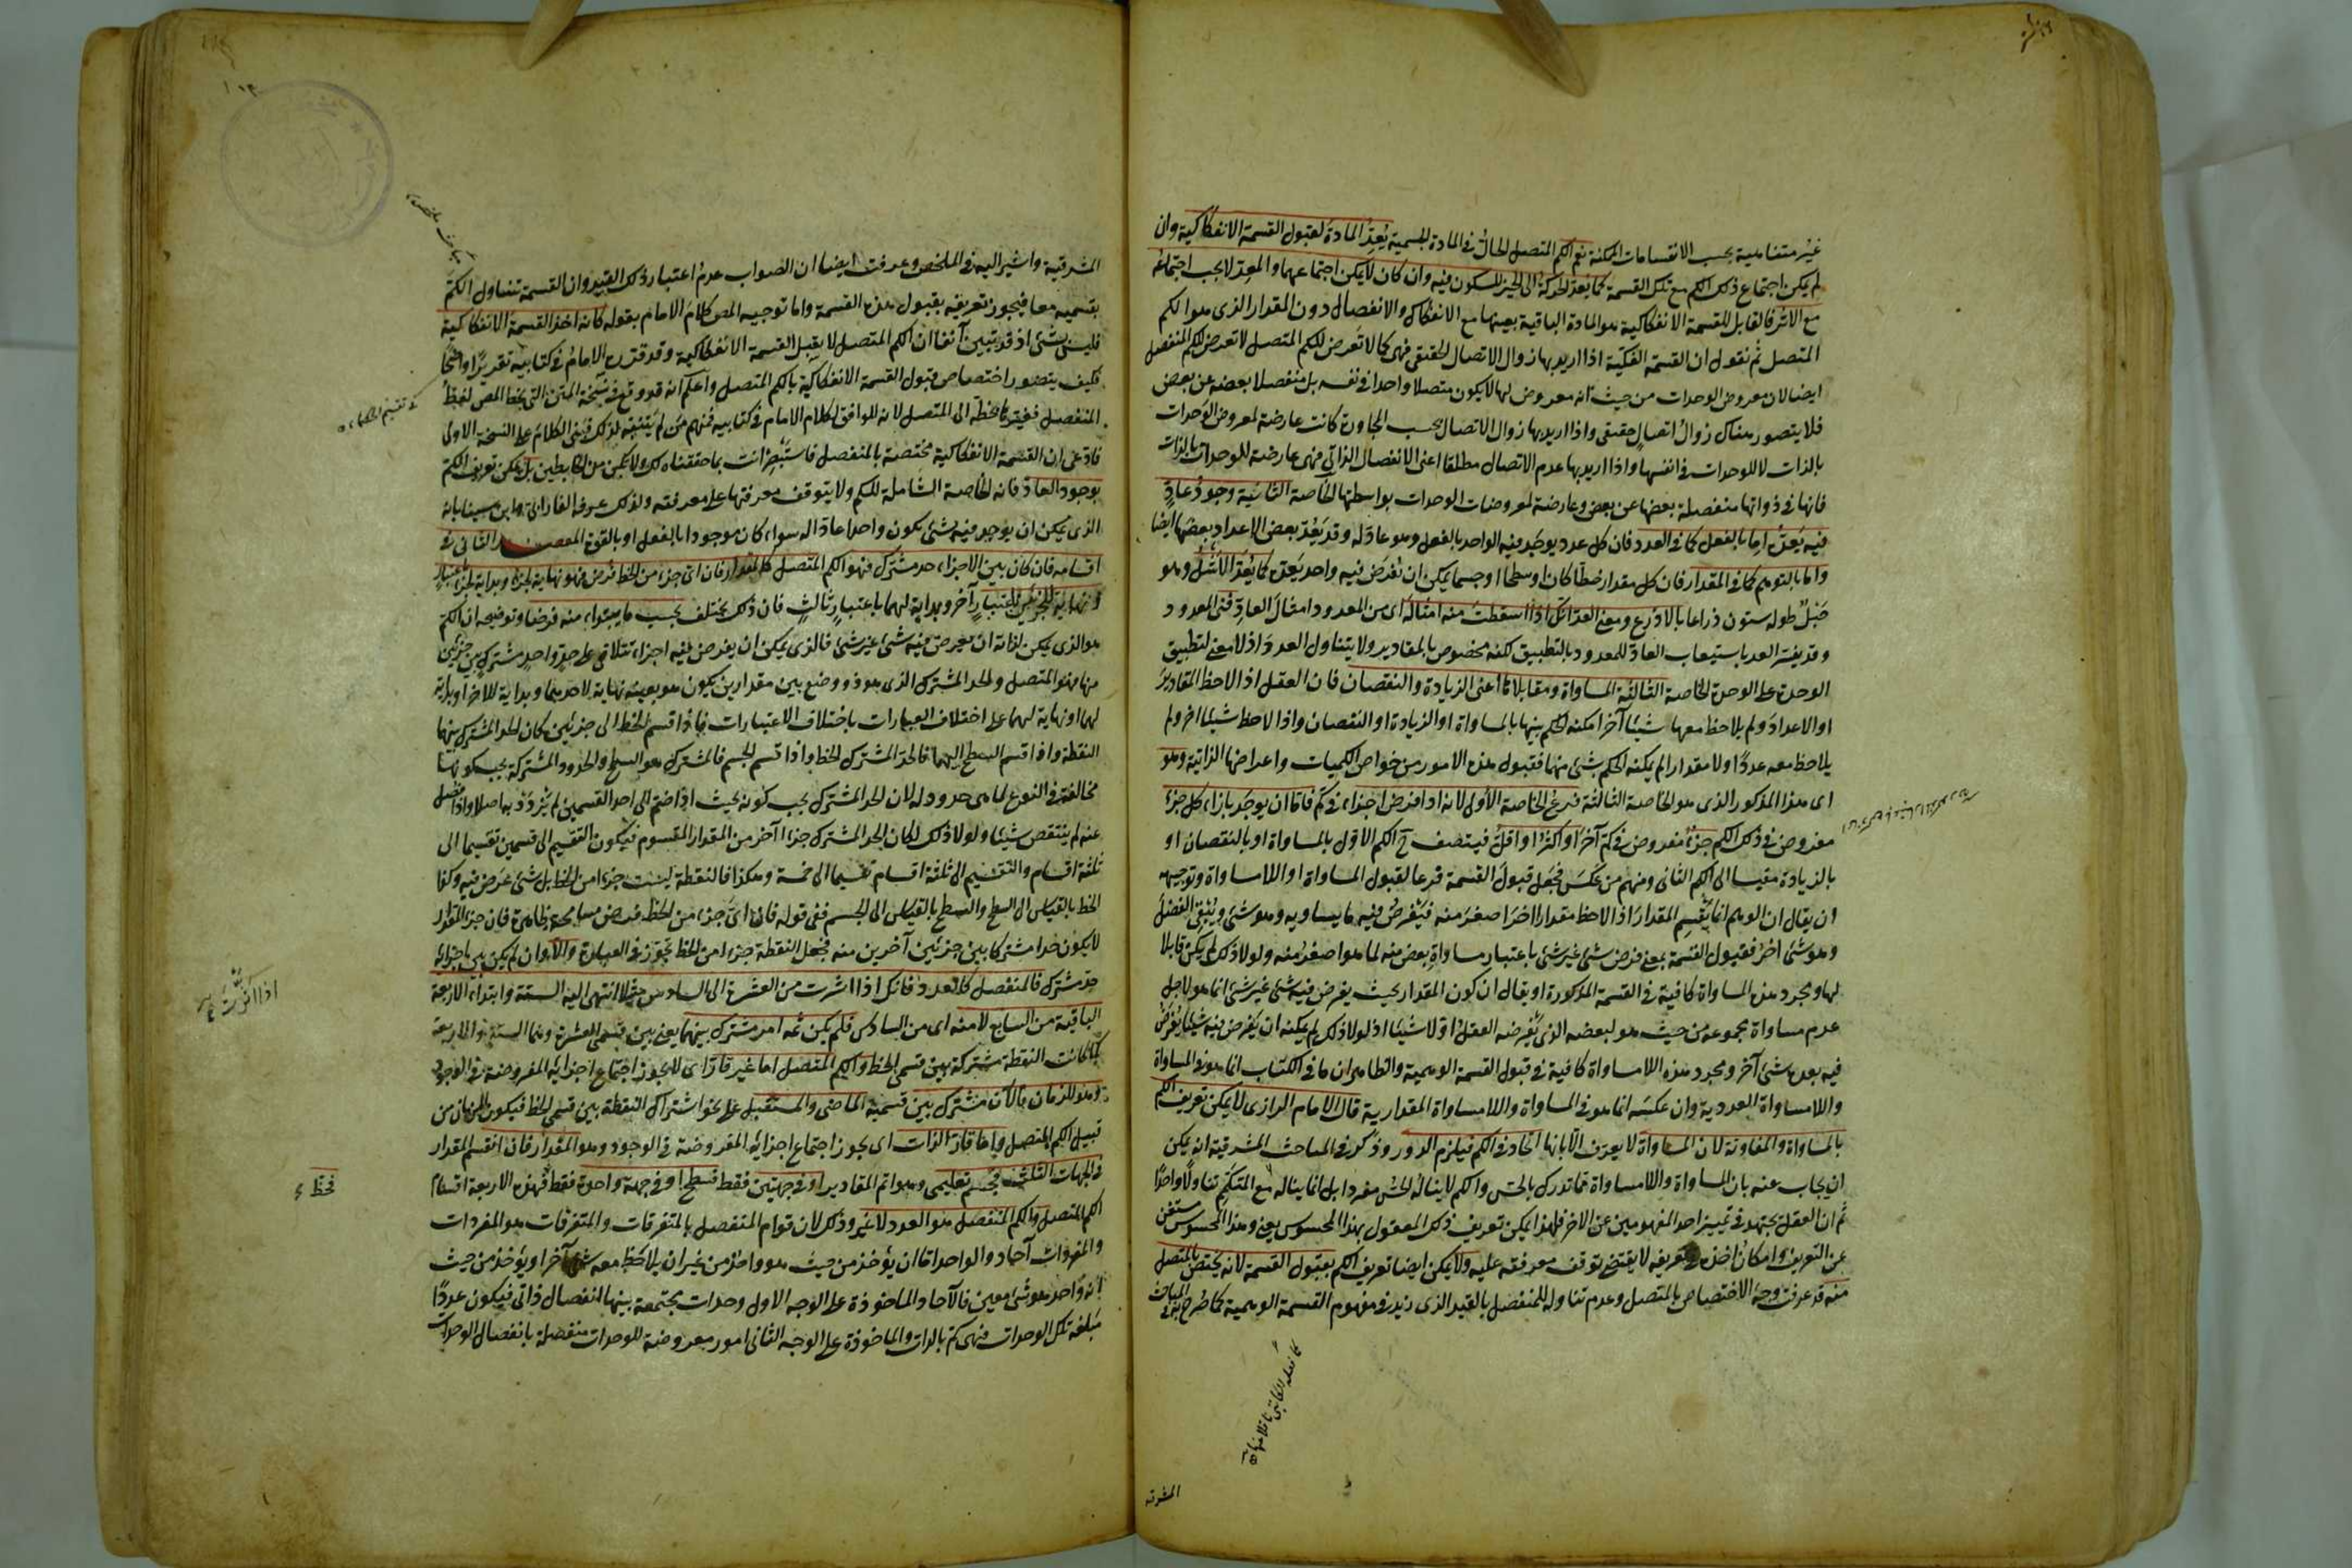 غير متناهية بحسب الانقسامات الممكنة نعم الكم المتصل الحال في المادة الجسمية يعد المادة لقبول القسمة الانفكاكية وان
لم يكن اجتماع ذلك الكم مع تلك القسمة كما يعد الحركة الى الحيز للسكون فيه وان كان لا يمكن اجتماعهما والمعد لا يجب اجتماعه
مع الاثر فالقابل للقسمة الانفكاكية هو المادة الباقية بعينها مع الانفكاك والانفصال دون المقدار الذى هو الكم
المتصل ثم نقول ان القسمة الفكية اذا اريد بها زوال الاتصال الحقيقى فهى كما لا تعرض للكم المتصل لا تعرض للكم المنفصل
ايضا لان معروض الوحدات من حيث انه معروض لها لا يكون متصلا واحدا في نفسه بل منفصلا بعضه عن بعض
فلا يتصور هناك زوال اتصال حقيقى واذا اريد بها زوال الاتصال بحسب المجاورة كانت عارضة لمعروض الوحدات
بالذات لا للوحدات في انفسها واذا اريد بها عدم الاتصال مطلقا اعنى الانفصال الذاتى فهى عارضة للوحدات بالذات
فانها في ذواتها منفصلة بعضها عن بعض وعارضة لمعروضات الوحدات بواسطتها الخاصة الثانية وجود عاد
فيه يعده اما بالفعل كما في العدد فان كل عدد يوجد فيه الواحد بالفعل وهو عاد له وقد يعد بعض الاعداد بعضها ايضا
واما بالتوهم كما في المقدار فان كل مقدار خطا كان او سطحا او جسما يمكن ان يفرض فيه واحد يعده كما يعد الاشل وهو
حبل طوله ستون ذراعا بالاذرع ومعنى العد انك اذا اسقطت منه امثاله اى من المعدود امثال العاد فنى المعدود
وقد يفسر العد باستيعاب العاد للمعدود بالتطبيق لكنه مخصوص بالمقادير ولا يتناول العدد اذ لا معنى لتطبيق
الوحدة على الوحدة الخاصة الثالثة المساواة ومقابلاتها اعنى الزيادة والنقصان فان العقل اذا لاحظ المقادير
او الاعداد ولم يلاحظ معها شيئا آخر امكنه الحكم بينها بالمساواة او الزيادة او النقصان واذا لاحظ شيئا آخر ولم
يلاحظ معه عددا ولا مقدارا لم يمكنه الحكم بشئ منها فقبول هذه الامور من خواص الكميات واعراضها الذاتية وهو
اى هذا المذكور الذى هو الخاصة الثالثة فرع الخاصة الاولى لانه اذا فرض اجزاء في كم فاما ان يوجد بازاء كل جزء
مفروض في ذلك الكم جزء مفروض في كم آخر او اكثر او اقل فيتصف ح الكم الاول بالمساواة او بالنقصان او
بالزيادة مقيسا الى الكم الثانى ومنهم من عكس فجعل قبول القسمة فرعا لقبول المساواة او اللامساواة وتوجيهه
ان يقال ان الوهم انما يقسم المقدار اذا لاحظ مقدارا آخر اصغر منه فيفرض فيه ما يساويه وهو شئ ويبقى الفضل
وهو شئ آخر فقبول القسمة بمعنى فرض شئ غير شئ باعتبار مساواة بعض منه لما هو اصغر منه ولولا ذلك لم يكن قابلا
لها ومجرد هذه المساواة كافية في القسمة المذكورة او يقال ان كون المقدار بحيث يفرض فيه شئ غير شئ انما هو لاجل
عدم مساواة مجموعه من حيث هو لبعضه الذى يفرضه العقل اولا شيئا اذ لولا ذلك لم يمكنه ان يفرض فيه شيئا يفرض
فيه بعده شئ آخر ومجرد هذه اللامساواة كافية في قبول القسمة الوهمية والظاهر ان ما في الكتاب انما هو في المساواة
واللامساواة العددية وان عكسه انما هو في المساواة واللامساواة المقدارية قال الامام الرازى لا يمكن تعريف الكم
بالمساواة والمفاوتة لان المساواة لا يعرف الا بانها اتحاد في الكم فيلزم الدور وذكر في المباحث المشرقية انه يمكن
ان يجاب عنه بان المساواة واللامساواة مما تدرك بالحس والكم لا يناله الحس مفردا بل انما يناله مع المتكمم تناولا واحدا
ثم ان العقل يجتهد في تمييز احد المفهومين عن الاخر فلهذا يمكن تعريف ذلك المعقول بهذا المحسوس يعنى وهذا المحسوس مستغن
عن التعريف وامكان اخذه في تعريفه لا يقتضى توقف معرفته عليه ولا يمكن ايضا تعريف الكم بقبول القسمة لانه يختص بالمتصل
منه قد عرفت وجه الاختصاص بالمتصل وعدم تناوله للمنفصل بالقيد الذى زيد في مفهوم القسمة الوهمية كما صرح به في المباحث
المشرقية
المشرقية واشير اليه في الملخص وعرفت ايضا ان الصواب عدم اعتبار ذلك القيد وان القسمة تتناول الكم
بقسميه معا فيجوز تعريفه بقبول هذه القسمة واما توجيه المص كلام الامام بقوله كانه اخذ القسمة الانفكاكية
فليس بشئ اذ قد تبين آنفا ان الكم المتصل لا يقبل القسمة الانفكاكية وقد قرره الامام في كتابيه تقريرا واضحا
فكيف يتصور اختصاص قبول القسمة الانفكاكية بالكم المتصل واعلم انه قد وقع في نسخة المتن التى بخط المص لفظ
المنفصل فغيره بخطه الى المتصل لانه الموافق لكلام الامام في كتابيه فمنهم من لم يتنبه لذلك فبنى الكلام على النسخة الاولى
فادعى ان القسمة الانفكاكية مختصة بالمنفصل فاستبصر انت بما حققناه لك ولا تكن من الخابطين بل يمكن تعريف الكم
بوجود العاد فانه الخاصة الشاملة للكم ولا يتوقف معرفتها على معرفته ولذلك عرفه الفارابى وابن سينا بانه
الذى يمكن ان يوجد فيه شئ يكون واحدا عادا له سواء كان موجودا بالفعل او بالقوة المقصد الثانى في
اقسامه فان كان بين الاجزاء حد مشترك فهو الكم المتصل كالمقدار فان اى جزء من الخط فرض فهو نهاية لجزء وبداية لجزء باعتبار
ونهاية للجزئين باعتبار آخر وبداية لهما باعتبار ثالث فان ذلك يختلف بحسب ما يبتداء منه فرضا وتوضيحه ان الكم
هو الذى يمكن لذاته ان يفرض فيه شئ غير شئ فالذى يمكن ان يفرض فيه اجزاء تتلاقى على حد واحد مشترك بين جزئين
منها فهو المتصل والحد المشترك الذى هو ذو وضع بين مقدارين يكون هو بعينه نهاية لاحدهما وبداية للآخر او بداية
لهما او نهاية لهما على اختلاف العبارات باختلاف الاعتبارات فاذا قسم الخط الى جزئين كان الحد المشترك بينهما
النقطة واذا قسم السطح اليهما فالحد المشترك الخط واذا قسم الجسم فالمشترك هو السطح والحدود المشتركة يجب كونها
مخالفة في النوع لما هى حدود له لان الحد المشترك يجب كونه بحيث اذا ضم الى احد القسمين لم يزدد به اصلا واذا فصل
عنه لم ينتقص شيئا ولولا ذلك لكان الحد المشترك جزءا آخر من المقدار المقسوم فيكون التقسيم الى قسمين تقسيما الى
ثلثة اقسام والتقسيم الى ثلثة اقسام تقسيما الى خمسة وهكذا فالنقطة ليست جزءا من الخط بل شئ عرض فيه وكذا
الخط بالقياس الى السطح والسطح بالقياس الى الجسم ففى قوله فان اى جزء من الخط فرض مسامحة ظاهرة فان جزء المقدار
لا يكون حدا مشتركا بين جزئين آخرين منه فجعل النقطة جزءا من الخط تجوز في العبارة والا اى وان لم يكن بين اجزائه
حد مشترك فالمنفصل كالعدد فانك اذا اشرت من العشرة الى السادس مثلا انتهى اليه الستة وابتداء الاربعة
الباقية من السابع لا منه اى من السادس فلم يكن ثمه امر مشترك بينهما يعنى بين قسمى العشرة وهما الستة والاربعة
كما كانت النقطة مشتركة بين قسمى الخط والكم المتصل اما غير قار اى لا يجوز اجتماع اجزائه المفروضة في الوجود
وهو الزمان فالآن مشترك بين قسميه الماضى والمستقبل على نحو اشتراك النقطة بين قسمى الخط فيكون الزمان من
قبيل الكم المتصل واما قار الذات اى يجوز اجتماع اجزائه المفروضة في الوجود وهو المقدار فان انقسم المقدار
في الجهات الثلث فجسم تعليمى وهو اتم المقادير او في جهتين فقط فسطح او في جهة واحدة فقط فهذه الاربعة اقسام
الكم المتصل والكم المنفصل هو العدد لا غير وذلك لان قوام المنفصل بالمتفرقات والمتفرقات هو المفردات
والمفردات آحاد والواحد اما ان يؤخذ من حيث هو واحد من غير ان يلاحظ معه شئ آخر او يؤخذ من حيث
انه واحد هو شئ معين فالآحاد الماخوذة على الوجه الاول وحدات مجتمعة بينها انفصال ذاتى فيكون عددا
مبلغه تلك الوحدات فهى كم بالذات والماخوذة على الوجه الثانى امور معروضة للوحدات منفصلة بانفصال الوحدات
فخط